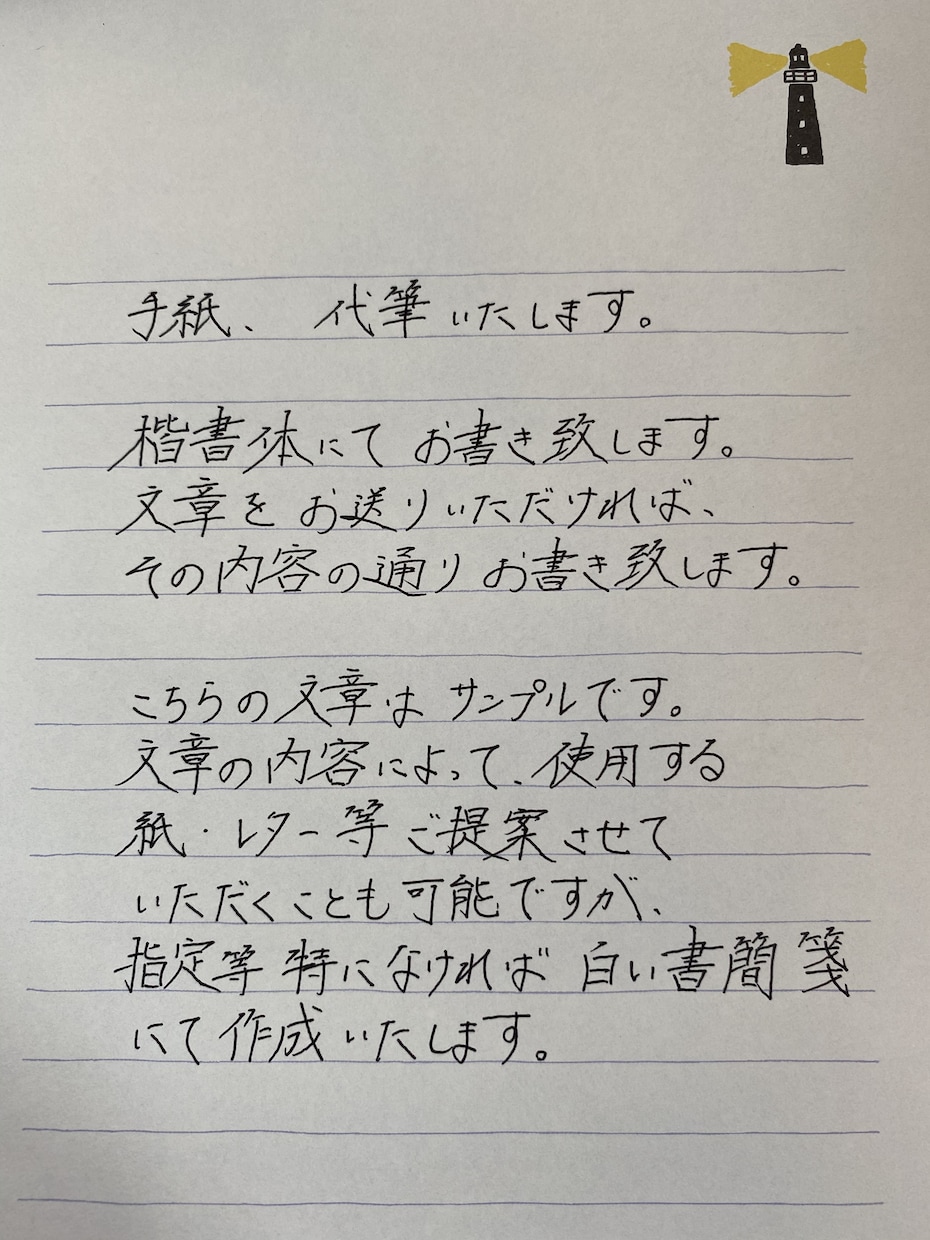 手紙、代筆いたします。
楷書体にてお書き致します。
文章をお送りいただければ、
その内容の通りお書き致します。
こちらの文章はサンプルです。
文章の内容によって、使用する
紙・レター等ご提案させて
いただくことも可能ですが、
指定等特になければ白い書簡箋
にて作成いたします。